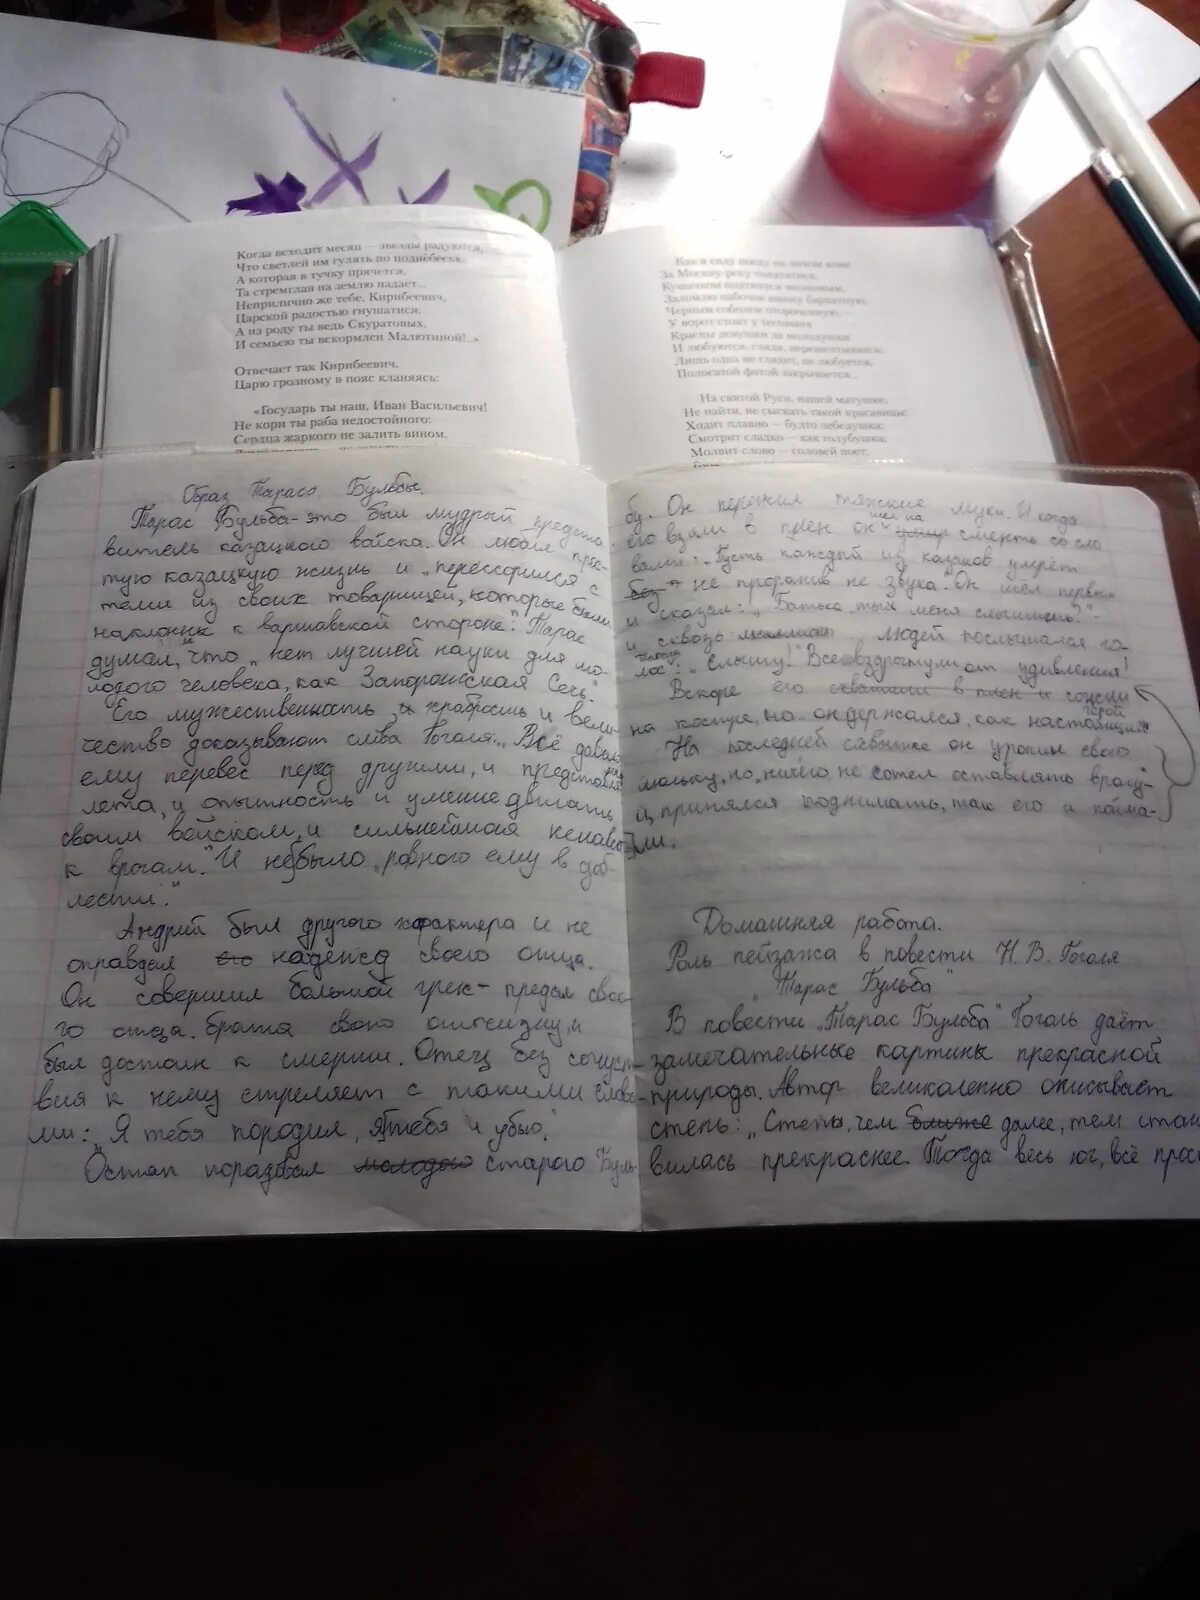 Когда всходит месяц — звезды радуются,
Что светлей им гулять по поднебесью;
А которая в тучку прячется,
Та стремглав на землю падает...
Неприлично же тебе, Кирибеевич,
Царской радостью гнушатися;
А из роду ты ведь Скуратовых,
И семьею ты вскормлен Малютиной!..»
Отвечает так Кирибеевич,
Царю грозному в пояс кланяясь:
«Государь ты наш, Иван Васильевич!
Не кори ты раба недостойного:
Сердца жаркого не залить вином,
Как я сяду поеду на лихом коне
За Москву-реку покататися,
Кушачком подтянуся шелковым,
Заломлю набочок шапку бархатную,
Черным соболем отороченную, —
У ворот стоят у тесовыих
Красны девушки да молодушки
И любуются, глядя, перешептываясь;
Лишь одна не глядит, не любуется,
Полосатой фатой закрывается...
На святой Руси, нашей матушке,
Не найти, не сыскать такой красавицы:
Ходит плавно — будто лебедушка;
Смотрит сладко — как голубушка;
Молвит слово — соловей поет;
Образ Тараса Бульбы.
Тарас Бульба - это был мудрый предста-
витель казацкого войска. Он любил прос-
тую казацкую жизнь и „перессорился с
теми из своих товарищей, которые были
наклонны к варшавской стороне". Тарас
думал, что „нет лучшей науки для мо-
лодого человека, как Запорожская Сечь".
Его мужественность, и храбрость и вели-
чество доказывают слова Гоголя: „Всё давало
ему перевес перед другими, и
лета, и опытность и умение двигать
своим войском, и сильнейшая ненависть
к врагам." И небыло „равного ему в доб-
лести."
Андрий был другого характера и не
оправдал его надежд своего отца.
Он совершил большой грех - предал свое-
го отца, брата свою отчизну, и
был достоин к смерти. Отец без сочувст-
вия к нему стреляет с такими слова-
ми: „Я тебя породил, я тебя и убью".
Остап поразовал молодого старого Буль-
бу. Он пережил муки. И когда
его взяли в плен он шел на смерть со сло
вами: „Пусть каждый из казаков умрёт
без не проронив не звука." Он шёл первым
и сказал: „Батько, ты меня слышишь?" -
и сквозь людей послышался го-
лос: „Слышу!" Все вздрогнули от удивления!
Вскоре его схватили в плен и сожгли
на костре, но он держался, как настоящий герой
На последней он уронил свою
люльку, но ничего не хотел оставлять врагу
а, принялся поднимать, так его и пойма-
ли.
Домашняя работа.
Роль пейзажа в повести Н. В. Гоголя
„Тарас Бульба"
В повести „Тарас Бульба" Гоголь даёт
замечательные картины прекрасной
природы. Автор великолепно описывает
степь: „Степь, чем ближе далее, тем стано
вилась прекраснее. Тогда весь юг, всё прос